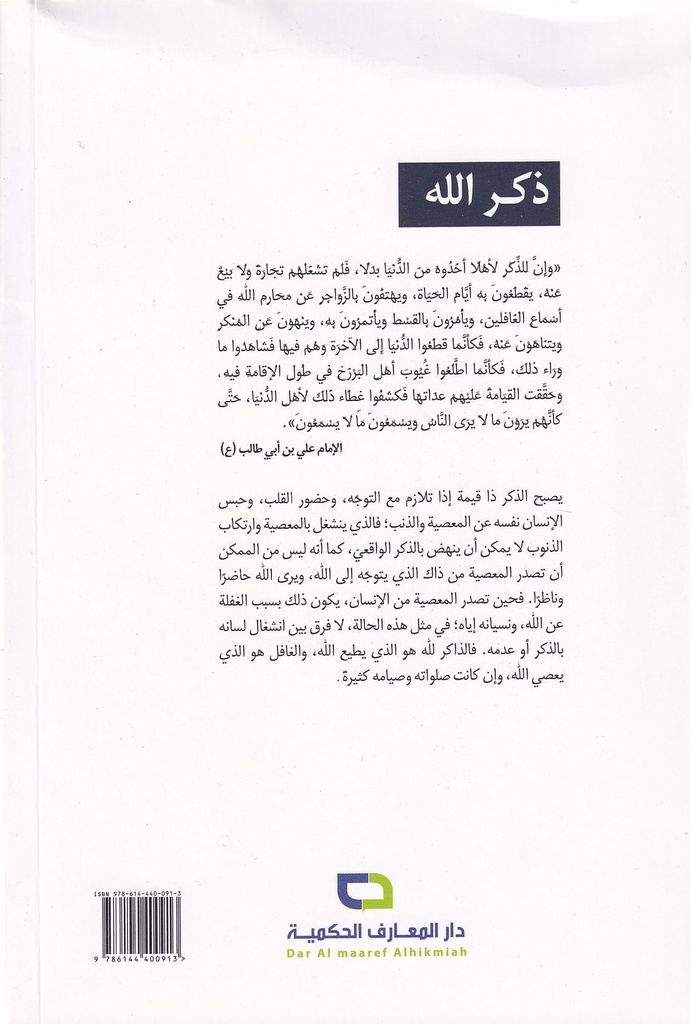 ذكر الله
«وإنَّ للذِّكر لأهلا أخَذُوه من الدُّنيَا بدلا، فَلَم تشغَلهُم تجارَة ولا بيَعٌ
عَنْهُ، يقطعُونَ به أيَّام الحَيَاة، ويهتفُونَ بالزَّواجر عَن محَارم الله في
أسْماع الغَافلينَ، ويأمُرُونَ بالقسْط ويأتمرُونَ به، وينهَوْنَ عَن المُنْكر
ويتناهَوْنَ عَنْهُ، فَكأنَّما قطعُوا الدُّنيَا إلى الآخرَة وهُم فيها فَشاهَدُوا ما
وراء ذلك، فَكأنَّما اطلَعُوا غُيُوبَ أهل البَرْزخ في طول الإقامة فيه،
وحقَّقت القيَامَة عَليْهم عداتها فَكشفُوا غطاء ذلك لأهل الدُّنيَا، حتَّى
كأنَّهُم يرَوْنَ ما لا يرَى النَّاسُ ويسْمَعُونَ مَا لا يسْمَعُونَ».
الإمام علي بن أبي طالب (ع)
يصبح الذكر ذا قيمة إذا تلازم مع التوجّه، وحضور القلب، وحبس
الإنسان نفسه عن المعصية والذنب؛ فالذي ينشغل بالمعصية وارتكاب
الذنوب لا يمكن أن ينهض بالذكر الواقعيّ، كما أنه ليس من الممكن
أن تصدر المعصية من ذاك الذي يتوجّه إلى الله، ويرى الله حاضرًا
وناظرًا. فحين تصدر المعصية من الإنسان، يكون ذلك بسبب الغفلة
عن الله، ونسيانه إياه؛ في مثل هذه الحالة، لا فرق بين انشغال لسانه
بالذكر أو عدمه. فالذاكر لله هو الذي يطيع الله، والغافل هو الذي
يعصي الله، وإن كانت صلواته وصيامه كثيرة.
ISBN 978-614-440-091-3
9 786144 400913>
دار المعارف الحكمية
Dar Al maaref Alhikmiah